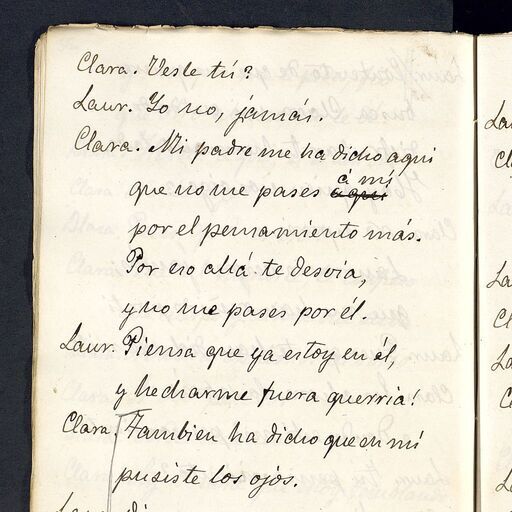 Clara. Vesle tú?
Laur. Yo no, jamás.
Clara. Mi padre me ha dicho aqui
á mi
que no me pases aqui
por el pensamiento más.
Por eso allá te desvia,
y no me pases por él.
Laur. Piensa que ya estoy en él,
y hecharme fuera querria!
Clara. Tambien ha dicho que en mi
pusiste los ojos.